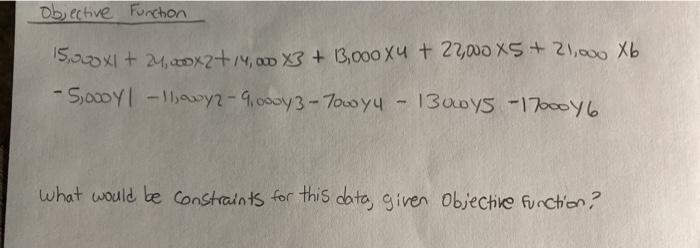 Objective Function
15,000X1 + 24,000X2 + 14,000 X3 + 13,000 X4 + 22,000 X5 + 21,000 X6
- 5,000Y1 - 11,000Y2 - 9,000Y3 - 7000Y4 - 13000Y5 - 17000Y6
What would be Constraints for this data, given Objective Function?